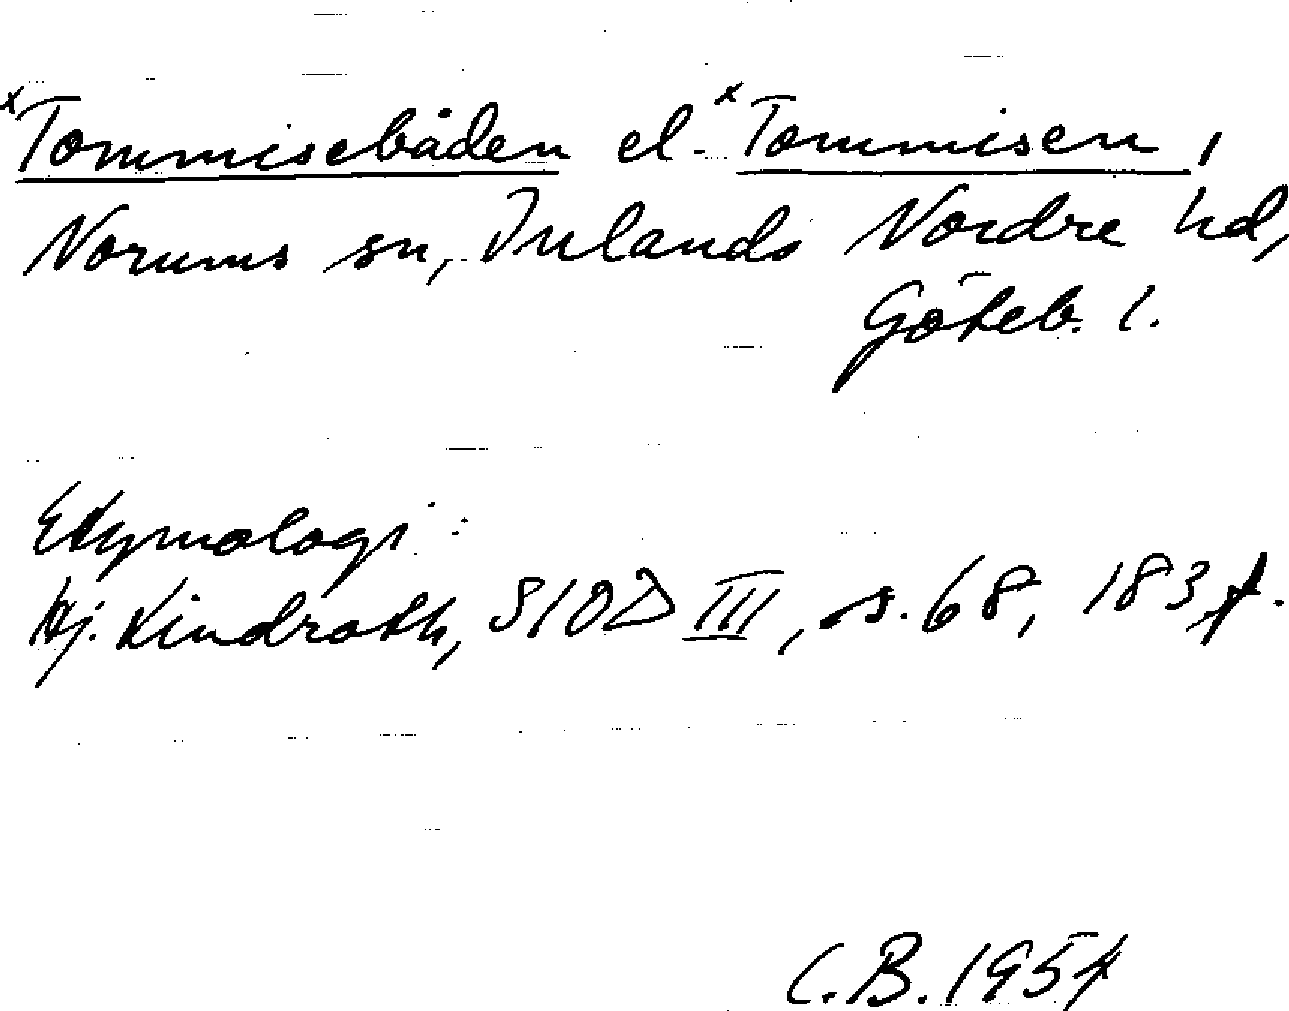 ˣTommisebåden el. ˣTommisen,
Norums sn, Inlands Nordre hd,
Göteb. l.
Etymologi:
Hj. Lindroth, SIOD III, s. 68, 183 f.
C.B. 1954